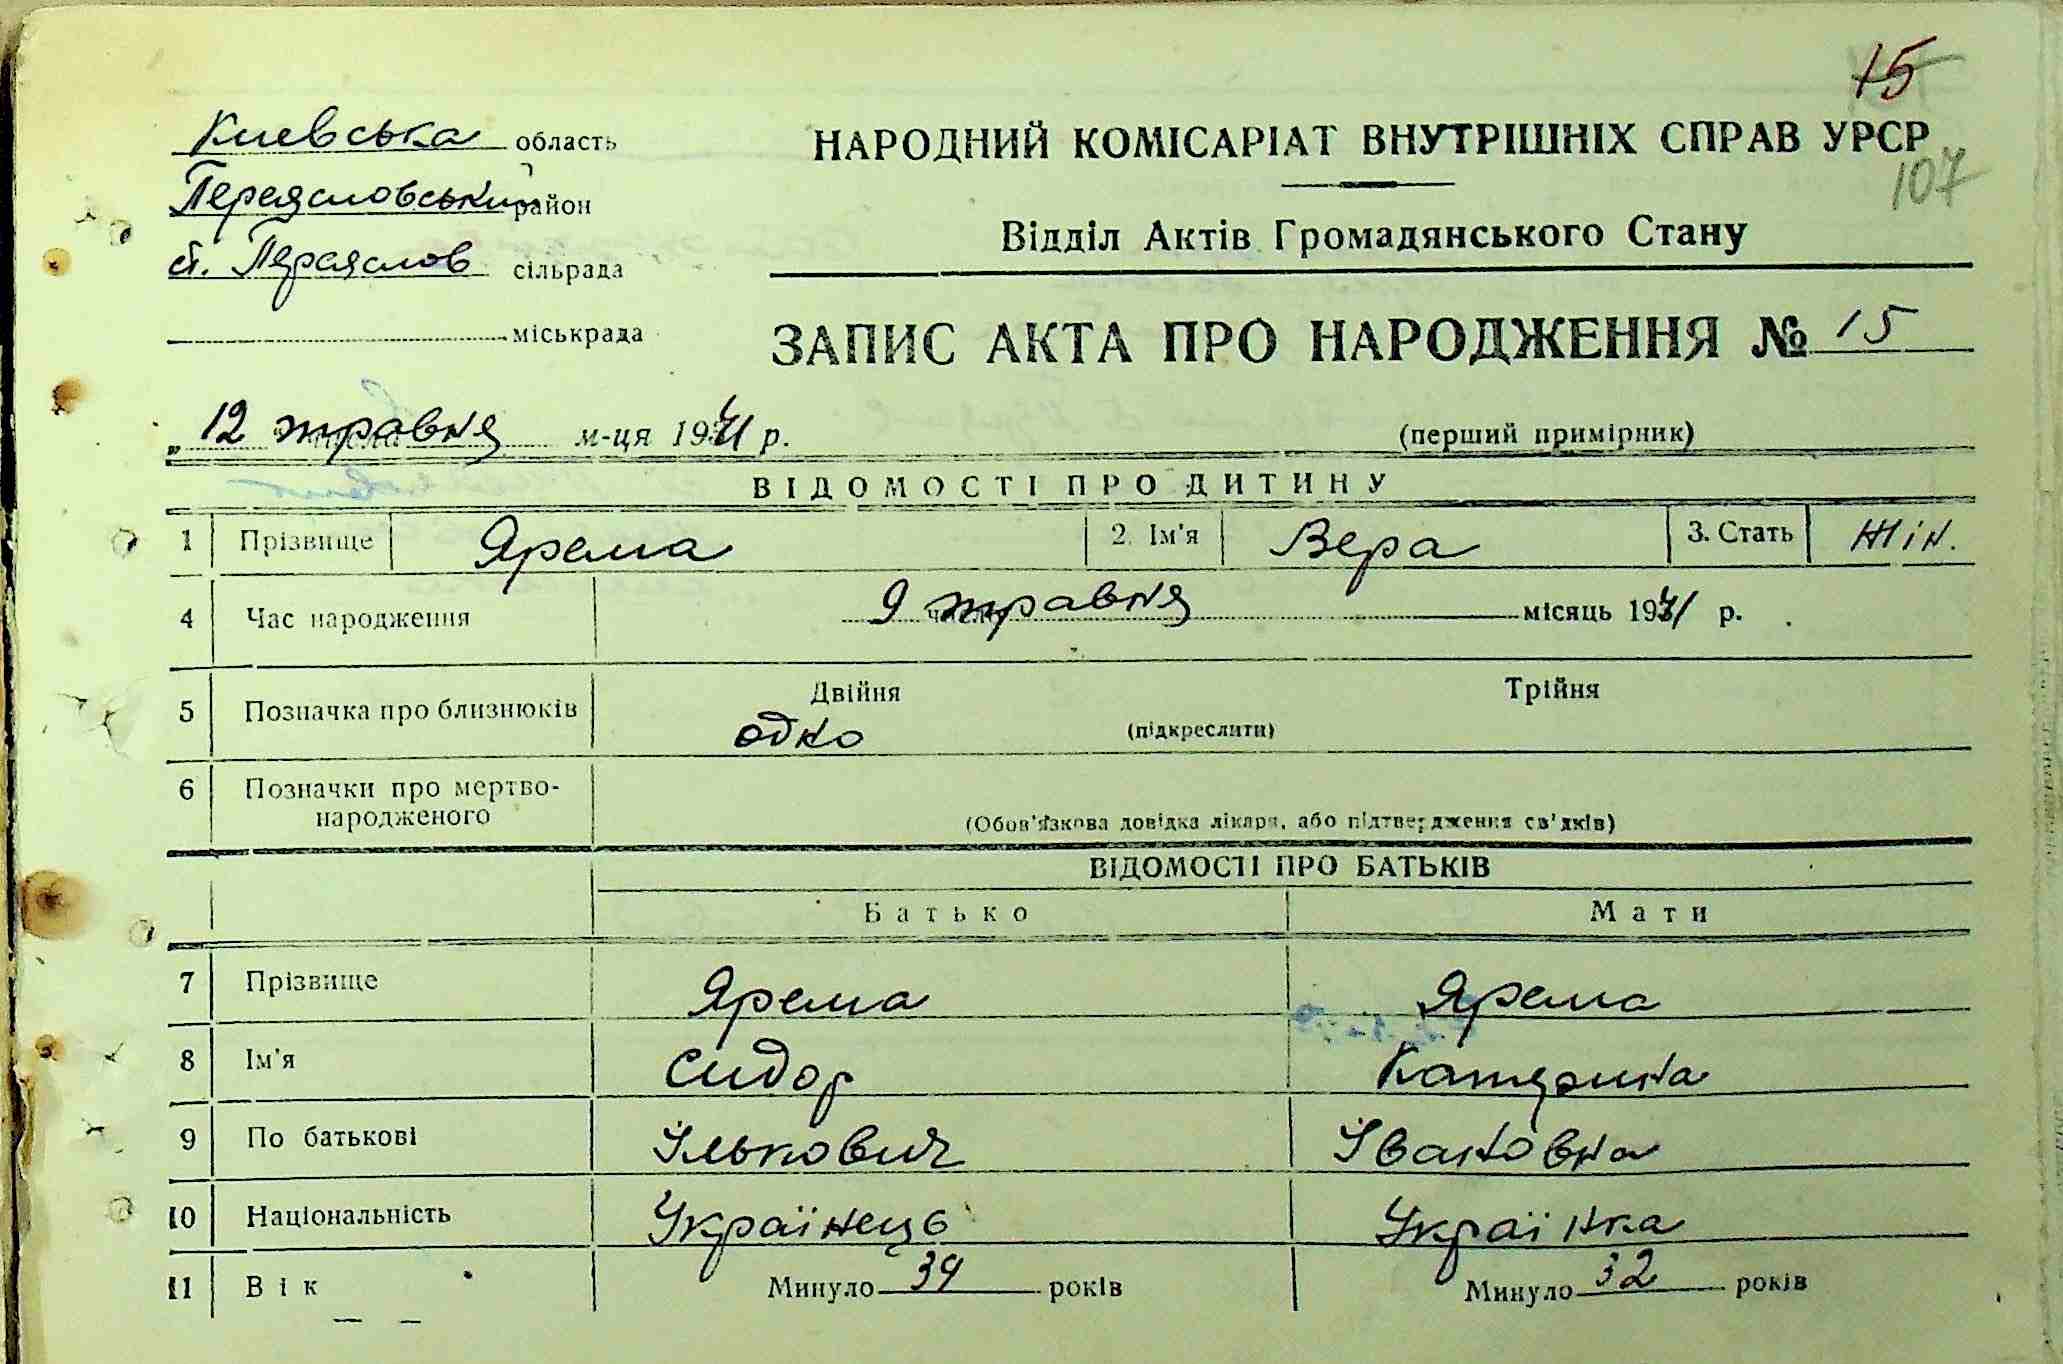 15
Киевська область
НАРОДНИЙ КОМІСАРІАТ ВНУТРІШНІХ СПРАВ УРСР
107
Переясловський район
Відділ Актів Громадянського Стану
ст. Переяслов сільрада
міськрада
ЗАПИС АКТА ПРО НАРОДЖЕННЯ № 15
„ 12 травня м-ця 1941 р. (перший примірник)
ВІДОМОСТІ ПРО ДИТИНУ
1 Прізвище Ярема 2. Ім'я Вера 3. Стать жін.
4 Час народження 9 травня місяць 1941 р.
5 Позначка про близнюків Двійня Трійня
одно (підкреслити)
6 Позначки про мертво-
народженого
(Обов'язкова довідка лікаря, або підтвердження св'дків)
ВІДОМОСТІ ПРО БАТЬКІВ
Батько Мати
7 Прізвище Ярема Ярема
8 Ім'я Сидор Катерина
9 По батькові Ількович Івановна
10 Національність Українець Українка
11 Вік Минуло 39 років Минуло 32 років